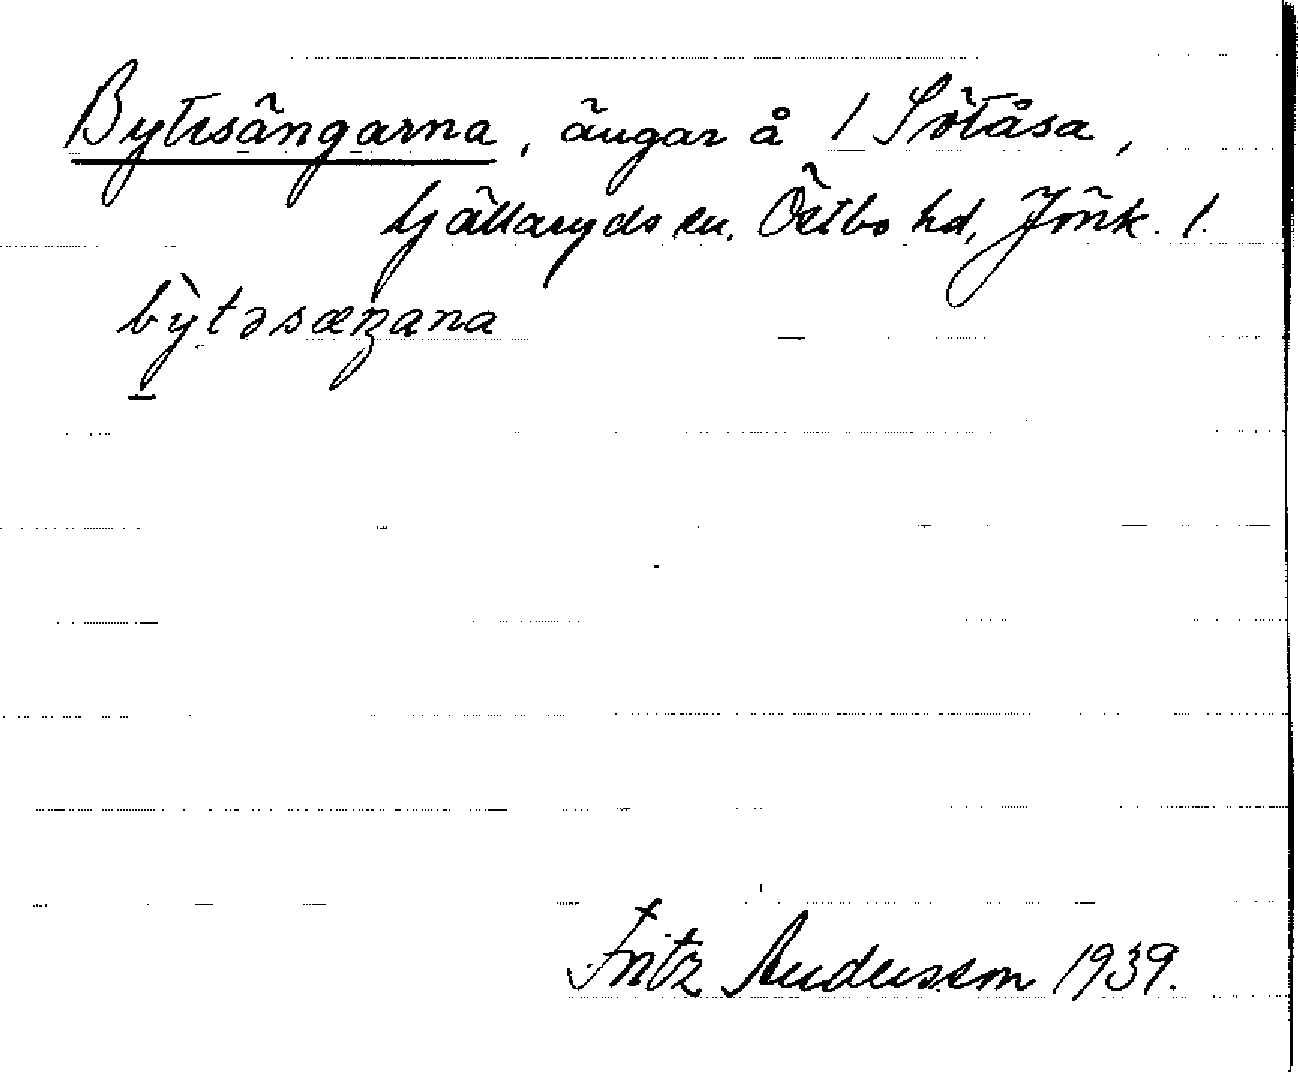 Bytesängarna, ängar å 1 Sötåsa,
Gällaryds sn. Östbo hd, Jönk. l.
bỳtəsæŋana
Fritz Andersson 1939.